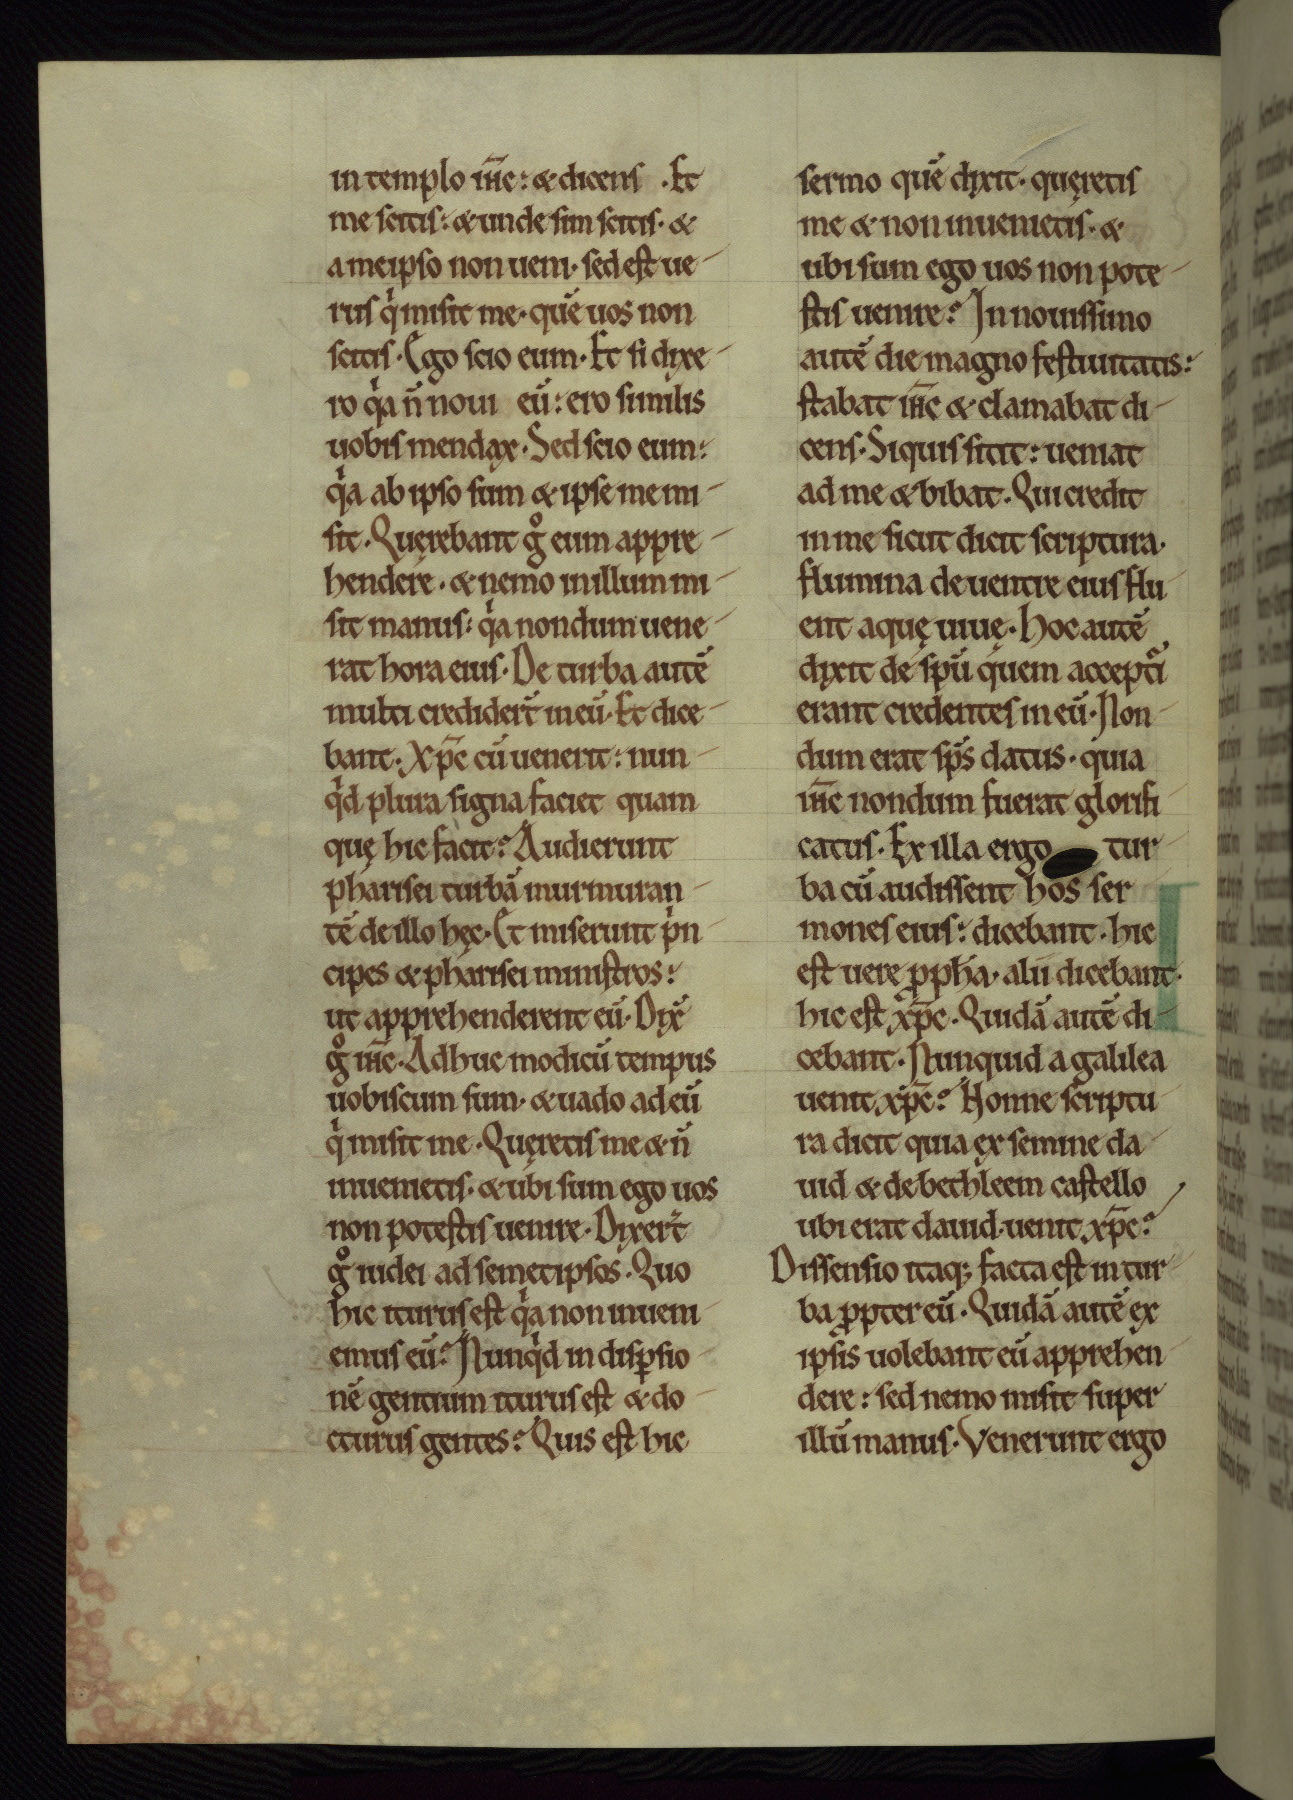 in templo ih̅c: & dicens . Et
me scitis: & unde sim scitis. &
a meipso non ueni. sed est ue-
rus qͥ misit me. quē uos non
scitis. Ego scio eum. Et si dixe-
ro qͥa n̄ noui eū: ero similis
uobis mendax. Sed scio eum:
qͥa ab ipso sum & ipse me mi-
sit. Quęrebant gͦ eum appre-
hendere. & nemo in illum mi-
sit manus: qͥa nondum uene-
rat hora eius. De turba autē
multi credider̄t in eū. Et dice-
bant. Xp̅c cū uenerit: nun-
qͥd plura signa faciet quam
quę hic facit? Audierunt
pharisei turbā murmuran-
tē de illo hęc. Et miserunt pͥn
cipes & pharisei ministros:
ut apprehenderent eū. Dix̄
gͦ ih̅c. Adhuc modicū tempus
uobiscum sum. & uado ad eū
qͥ misit me. Quęretis me & n̄
inuenietis. & ubi sum ego uos
non potestis uenire. Dixer̄t
gͦ iudei ad semetipsos. Quo
hic iturus est qͥa non inueni-
emus eū? Nunqͥd in disꝑsio-
nē gentium iturus est & do-
cturus gentes? Quis est hic
sermo quē dixit. quęretis
me & non inuenietis. &
ubi sum ego uos non pote-
stis uenire? In nouissimo
autē die magno festiuitatis:
stabat ih̅c & clamabat di-
cens. Siquis sitit: ueniat
ad me & bibat. Qui credit
in me sicut dicit scriptura.
flumina de uentre eius flu
ent aquę uiuę. Hoc autē
dixit de spū quem accepti
erant credentes in eū. Non-
dum erat sp̅s datus. quia
ih̅c nondum fuerat glorifi
catus. Ex illa ergo tur-
ba cū audissent hos ser
mones eius: dicebant. hic
est uere ꝓpha. alii dicebant.
hic est xp̅c. Quidā autē di-
cebant. Nunquid a galilea
uenit xp̅c? Nonne scriptu
ra dicit quia ex semine da-
uid & de bethleem castello
ubi erat dauid. uenit xp̅c?
Dissensio itaq; facta est in tur-
ba ꝓpter eū. Quidā autē ex
ipsis uolebant eū apprehen-
dere: sed nemo misit super
illū manus. Venerunt ergo